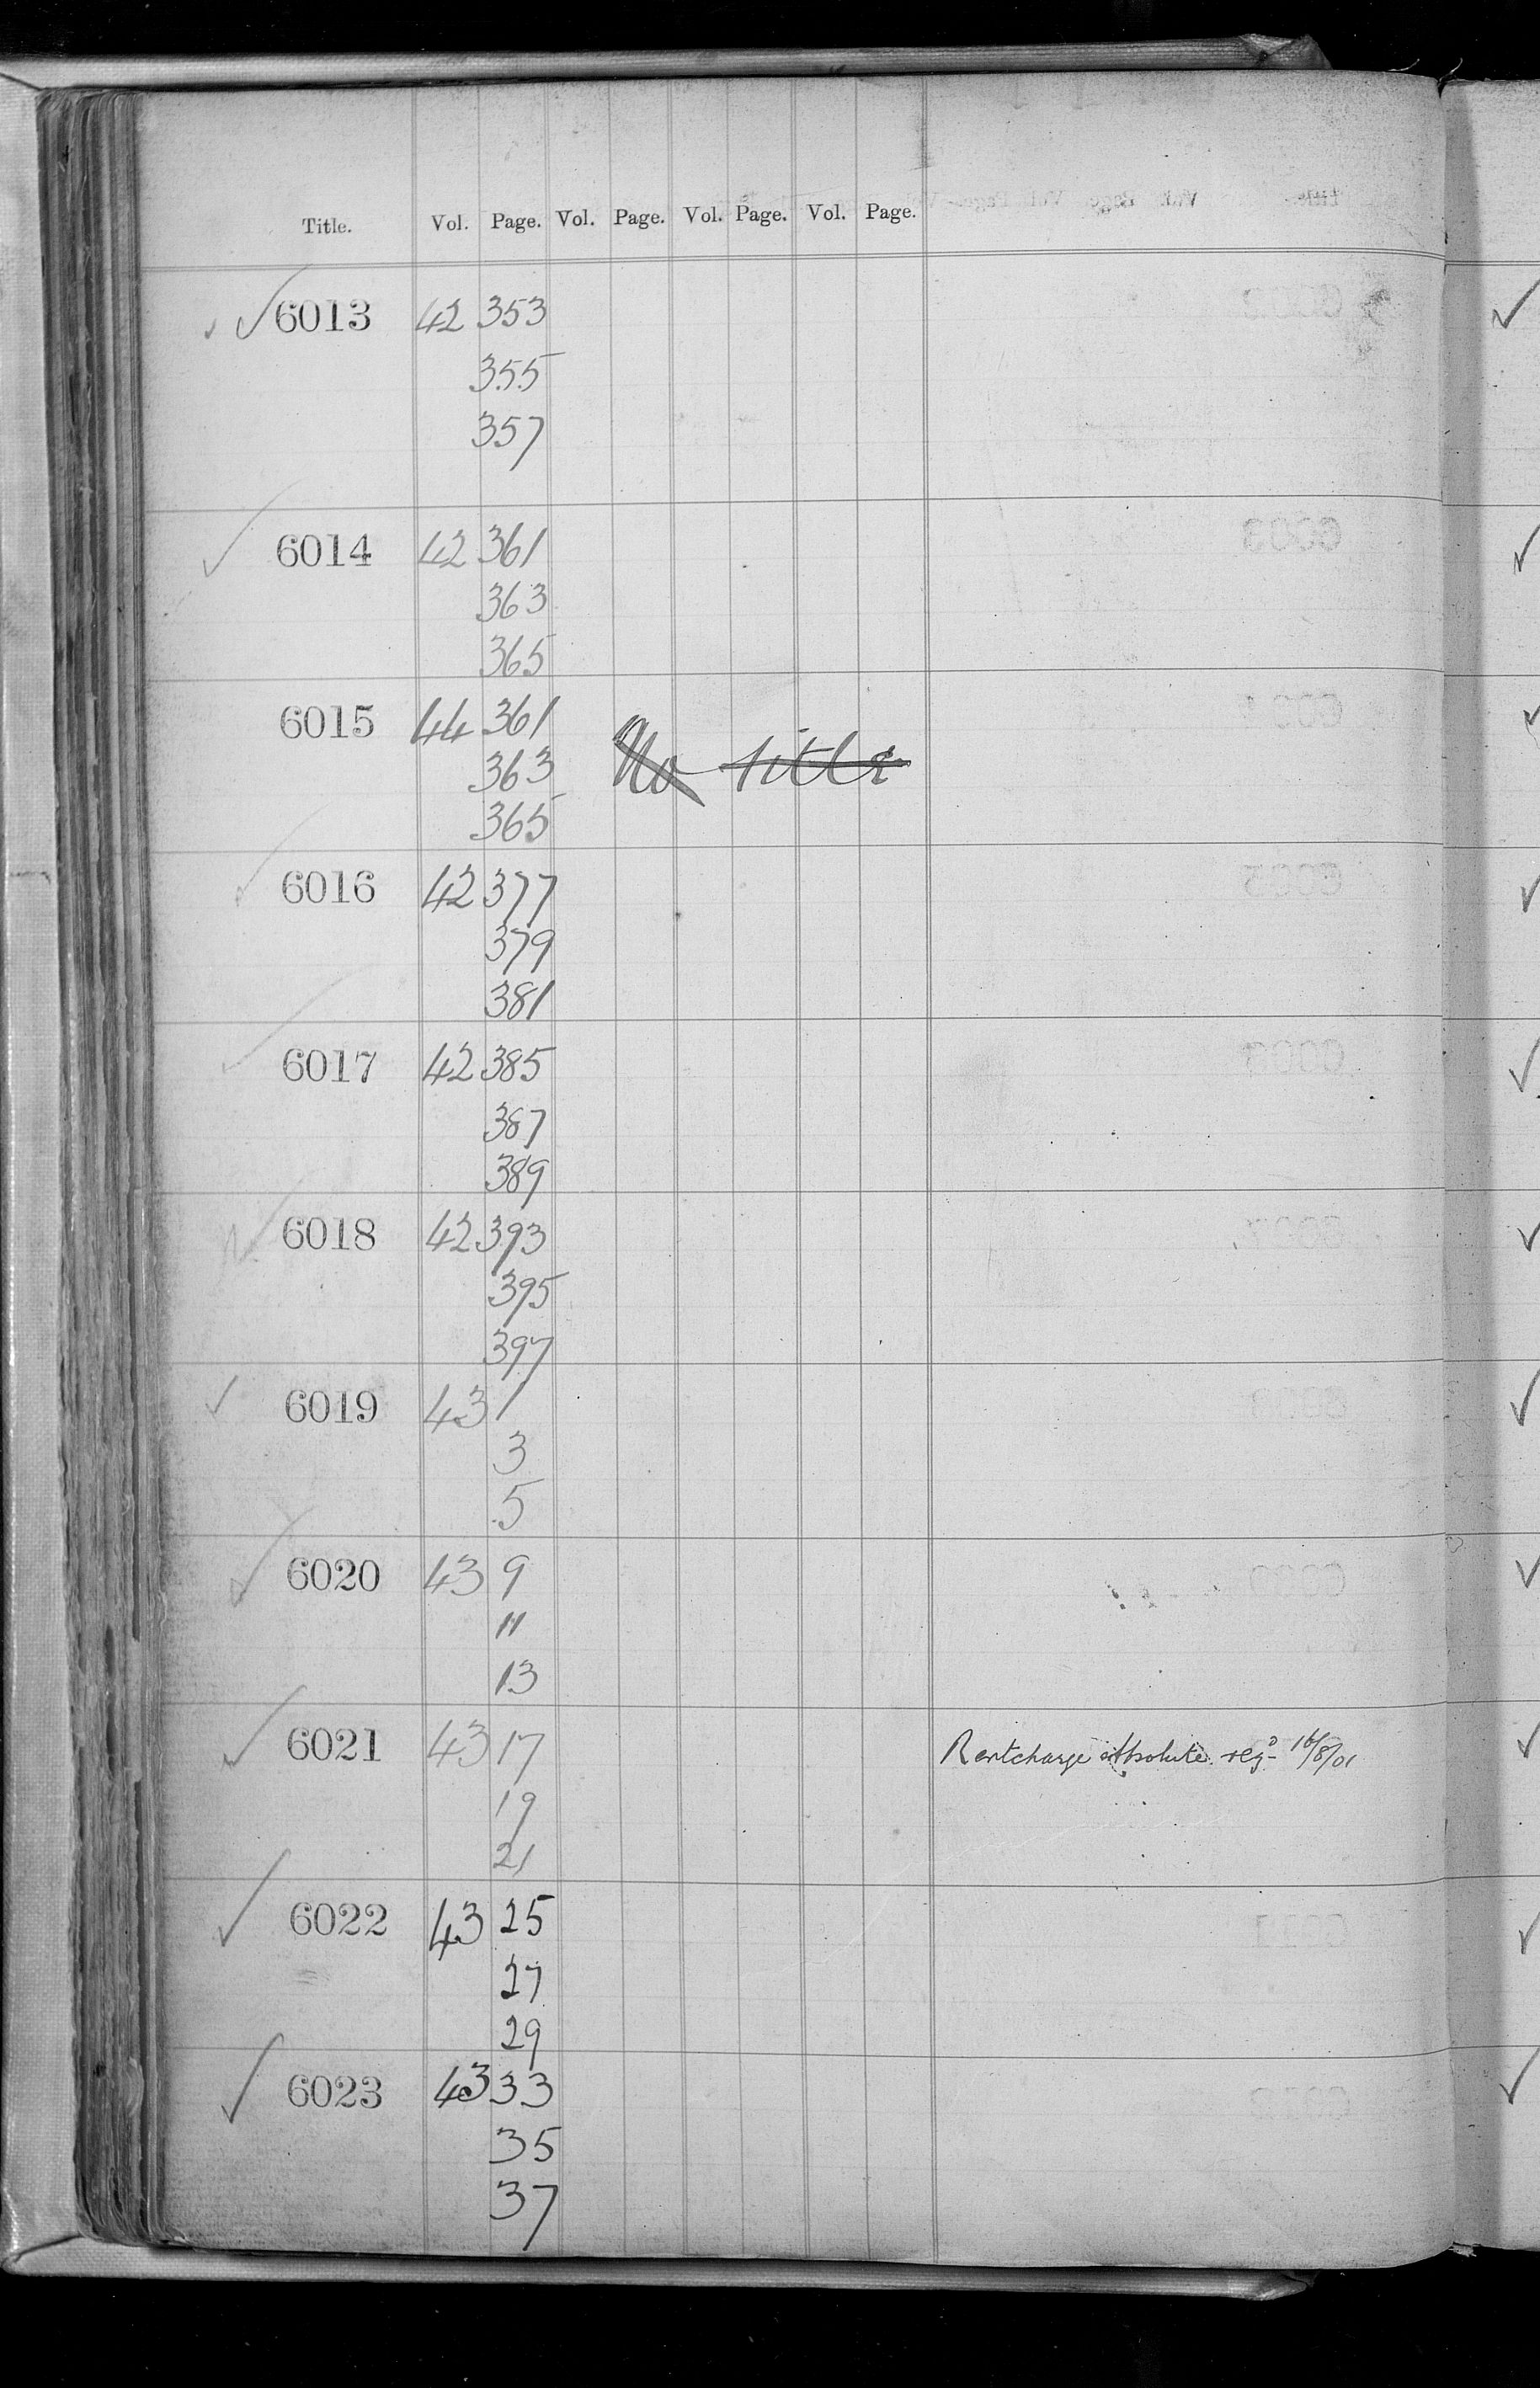 Title. Vol. Page. Vol. Page. Vol. Page. Vol. Page.
6013 42 353
355
357
6014 42 361
363
365
6015 44 361
363 No title
365
6016 42 377
379
381
6017 42 385
387
389
6018 42 393
395
397
6019 43 1
3
5
6020 43 9
11
13
6021 43 17 Rentcharge absolute regd 16/8/01
19
21
6022 43 25
27
29
6023 43 33
35
37